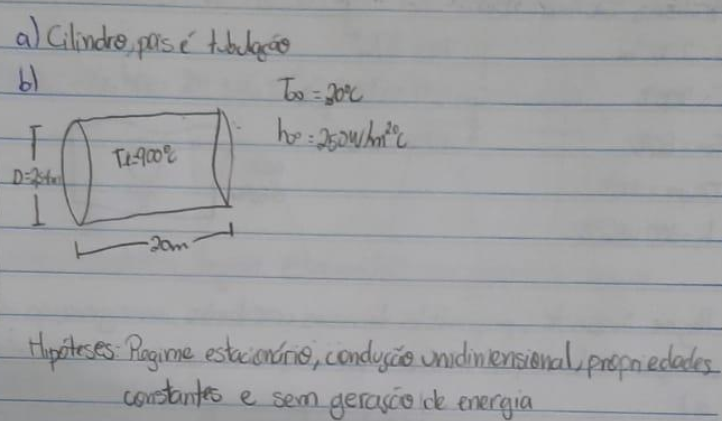 a) Cilindro, pois é tubulação
b)
T∞ = 20°C
h∞ = 250W/m²°C
T1=900°C
20m
Hipóteses: Regime estacionário, condução unidimensional, propriedades
constantes e sem geração de energia